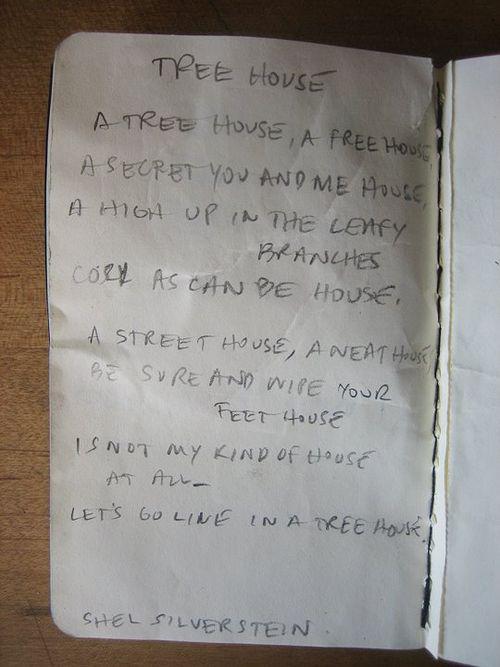 TREE HOUSE
A TREE HOUSE, A FREE HOUSE,
A SECRET YOU AND ME HOUSE,
A HIGH UP IN THE LEAFY
BRANCHES
COZY AS CAN BE HOUSE.
A STREET HOUSE, A NEAT HOUSE
BE SURE AND WIPE YOUR
FEET HOUSE
IS NOT MY KIND OF HOUSE
AT ALL—
LET'S GO LIVE IN A TREE HOUSE.
SHEL SILVERSTEIN.